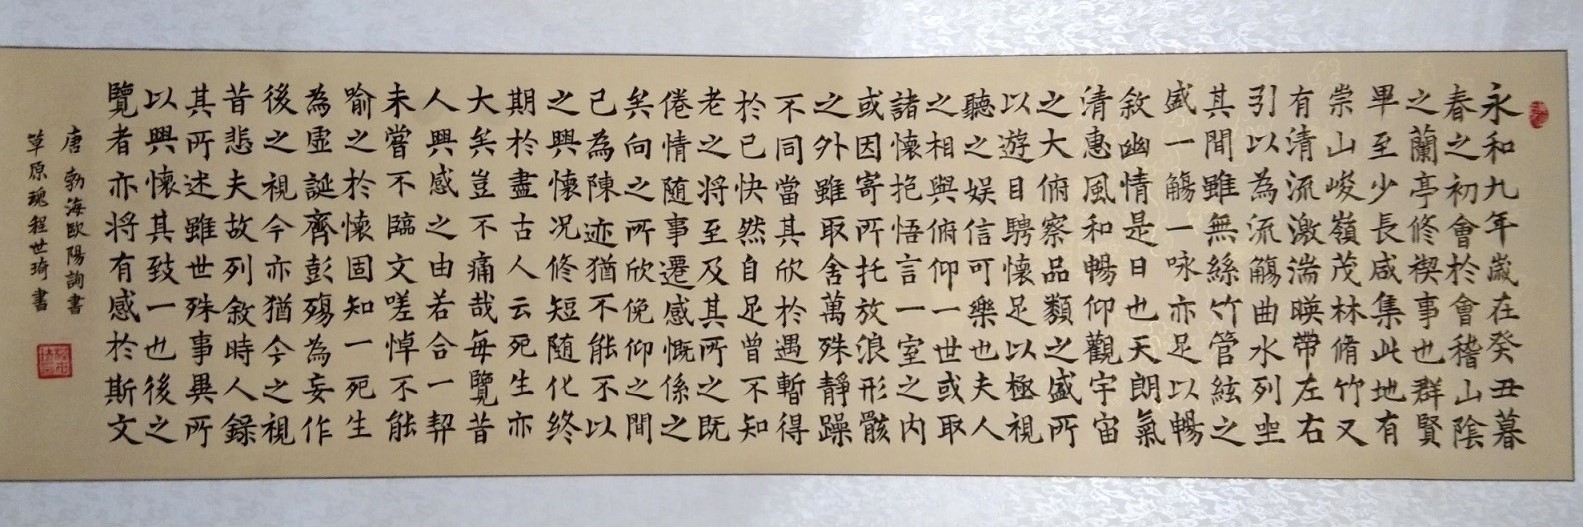 永和九年歲在癸丑暮
春之初會於會稽山陰
之蘭亭修稧事也群賢
畢至少長咸集此地有
崇山峻嶺茂林脩竹又
有清流激湍暎帶左右
引以為流觴曲水列坐
其間雖無絲竹管絃之
盛一觴一咏亦足以暢
敘幽情是日也天朗氣
清惠風和暢仰觀宇宙
之大俯察品類之盛所
以遊目騁懷足以極視
聽之娛信可樂也夫人
之相與俯仰一世或取
諸懷抱悟言一室之内
或因寄所托放浪形骸
之外雖取舍萬殊靜躁
不同當其欣於遇暫得
於己快然自足曾不知
老之將至及其所之既
倦情随事遷感慨係之
矣向之所欣俛仰之間
已為陳迹猶不能不以
之興懷况修短随化終
期於盡古人云死生亦
大矣豈不痛哉每覽昔
人興感之由若合一契
未嘗不臨文嗟悼不能
喻之於懷固知一死生
為虛誕齊彭殤為妄作
後之視今亦猶今之視
昔悲夫故列敘時人錄
其所述雖世殊事異所
以興懷其致一也後之
覽者亦將有感於斯文
唐勃海歐陽詢書
草原魂程世琦書